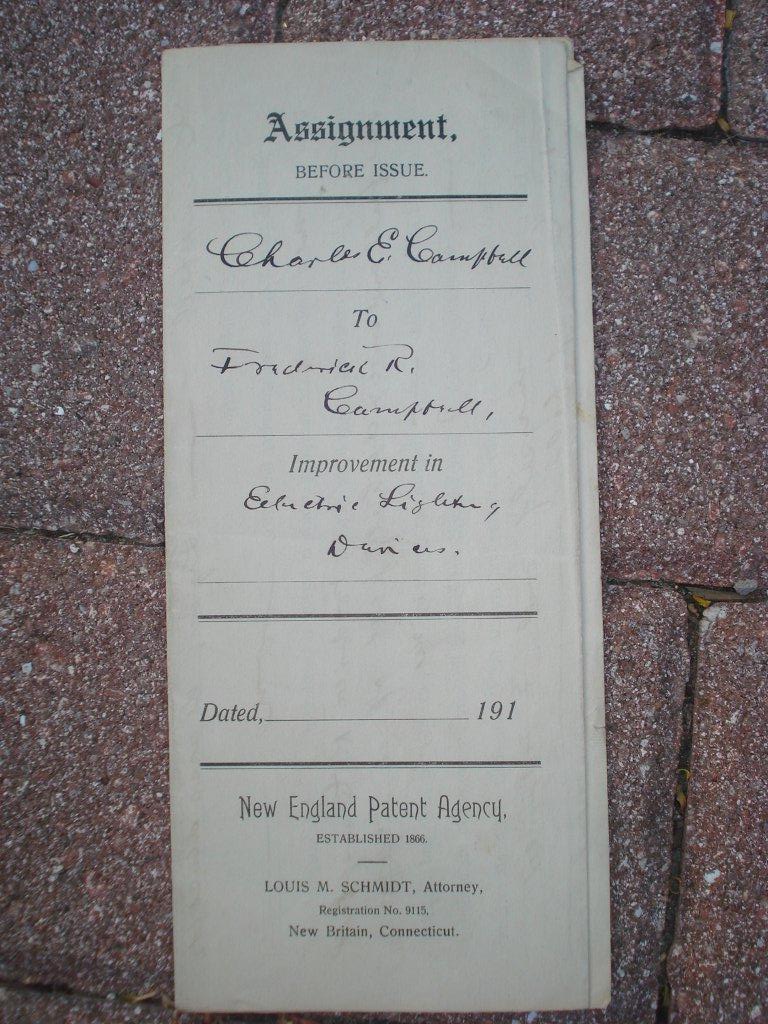 Assignment,
BEFORE ISSUE.
Charles E. Campbell
To
Frederick R.
Campbell,
Improvement in
Electric Lighting
Devices.
Dated, 191
New England Patent Agency,
ESTABLISHED 1866.
LOUIS M. SCHMIDT, Attorney,
Registration No. 9115,
New Britain, Connecticut.